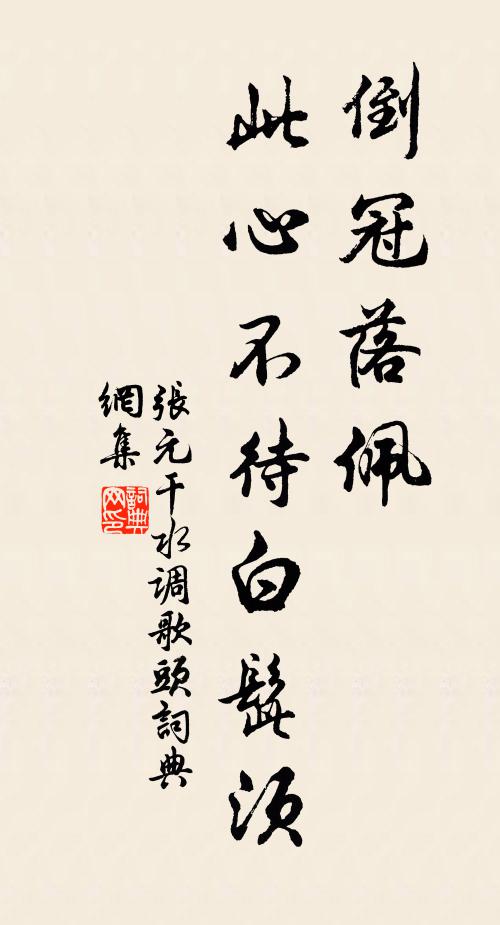 倒冠落佩
此心不待白髭须
張元干水调歌頭詞典
網集
詞典网印